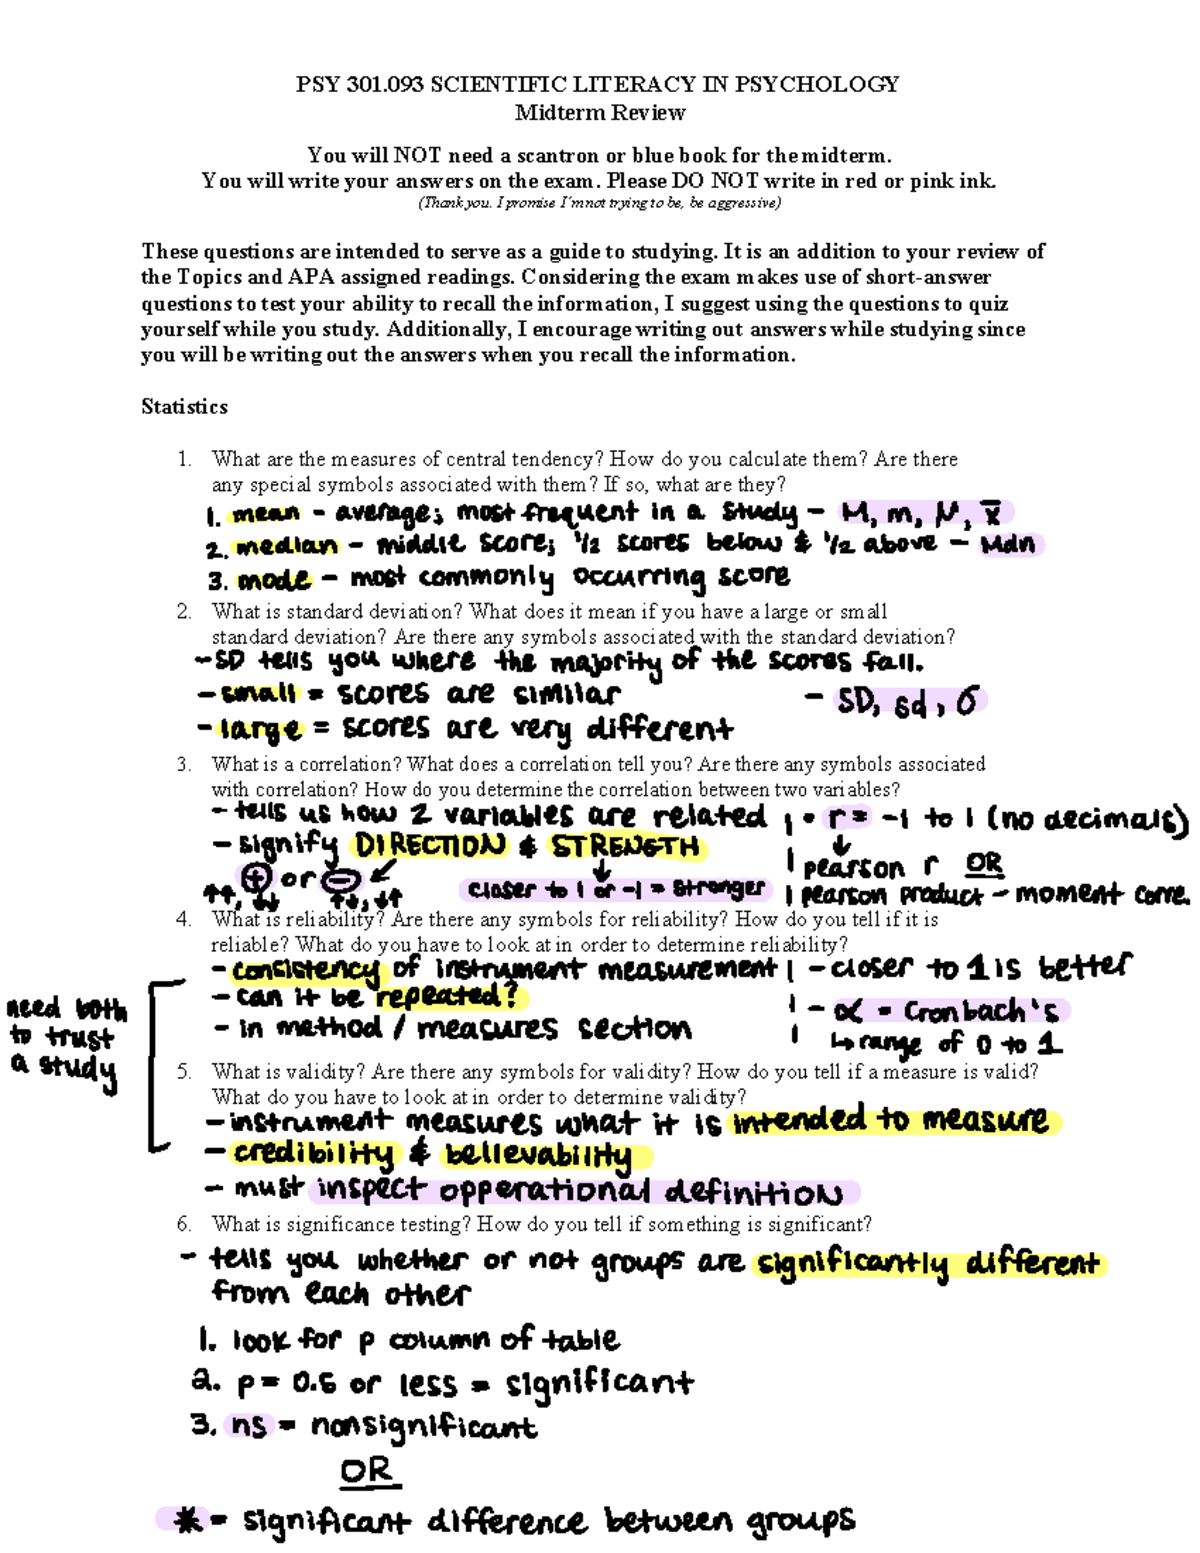 PSY 301.093 SCIENTIFIC LITERACY IN PSYCHOLOGY
Midterm Review
You will NOT need a scantron or blue book for the midterm.
You will write your answers on the exam. Please DO NOT write in red or pink ink.
(Thank you. I promise I'm not trying to be, be aggressive)
These questions are intended to serve as a guide to studying. It is an addition to your review of
the Topics and APA assigned readings. Considering the exam makes use of short-answer
questions to test your ability to recall the information, I suggest using the questions to quiz
yourself while you study. Additionally, I encourage writing out answers while studying since
you will be writing out the answers when you recall the information.
Statistics
1. What are the measures of central tendency? How do you calculate them? Are there
any special symbols associated with them? If so, what are they?
1. mean - average; most frequent in a study - M, m, μ, x̄
2. median - middle score; 1/2 scores below & 1/2 above - Mdn
3. mode - most commonly occurring score
2. What is standard deviation? What does it mean if you have a large or small
standard deviation? Are there any symbols associated with the standard deviation?
- SD tells you where the majority of the scores fall.
- small = scores are similar - SD, sd, σ
- large = scores are very different
3. What is a correlation? What does a correlation tell you? Are there any symbols associated
with correlation? How do you determine the correlation between two variables?
- tells us how 2 variables are related • r = -1 to 1 (no decimals)
- signify DIRECTION & STRENGTH ↓ pearson r OR
⊕ or ⊖ ↙ ↓ closer to 1 or -1 = stronger pearson product - moment corre.
↑↑, ↓↓ ↑↓, ↓↑
4. What is reliability? Are there any symbols for reliability? How do you tell if it is
reliable? What do you have to look at in order to determine reliability?
- consistency of instrument measurement - closer to 1 is better
- can it be repeated? - α = Cronbach's
- in method / measures section ↳ range of 0 to 1
need both
to trust
a study
5. What is validity? Are there any symbols for validity? How do you tell if a measure is valid?
What do you have to look at in order to determine validity?
- instrument measures what it is intended to measure
- credibility & believability
- must inspect opperational definition
6. What is significance testing? How do you tell if something is significant?
- tells you whether or not groups are significantly different
from each other
1. look for p column of table
2. p = 0.5 or less = significant
3. ns = nonsignificant
OR
* = significant difference between groups